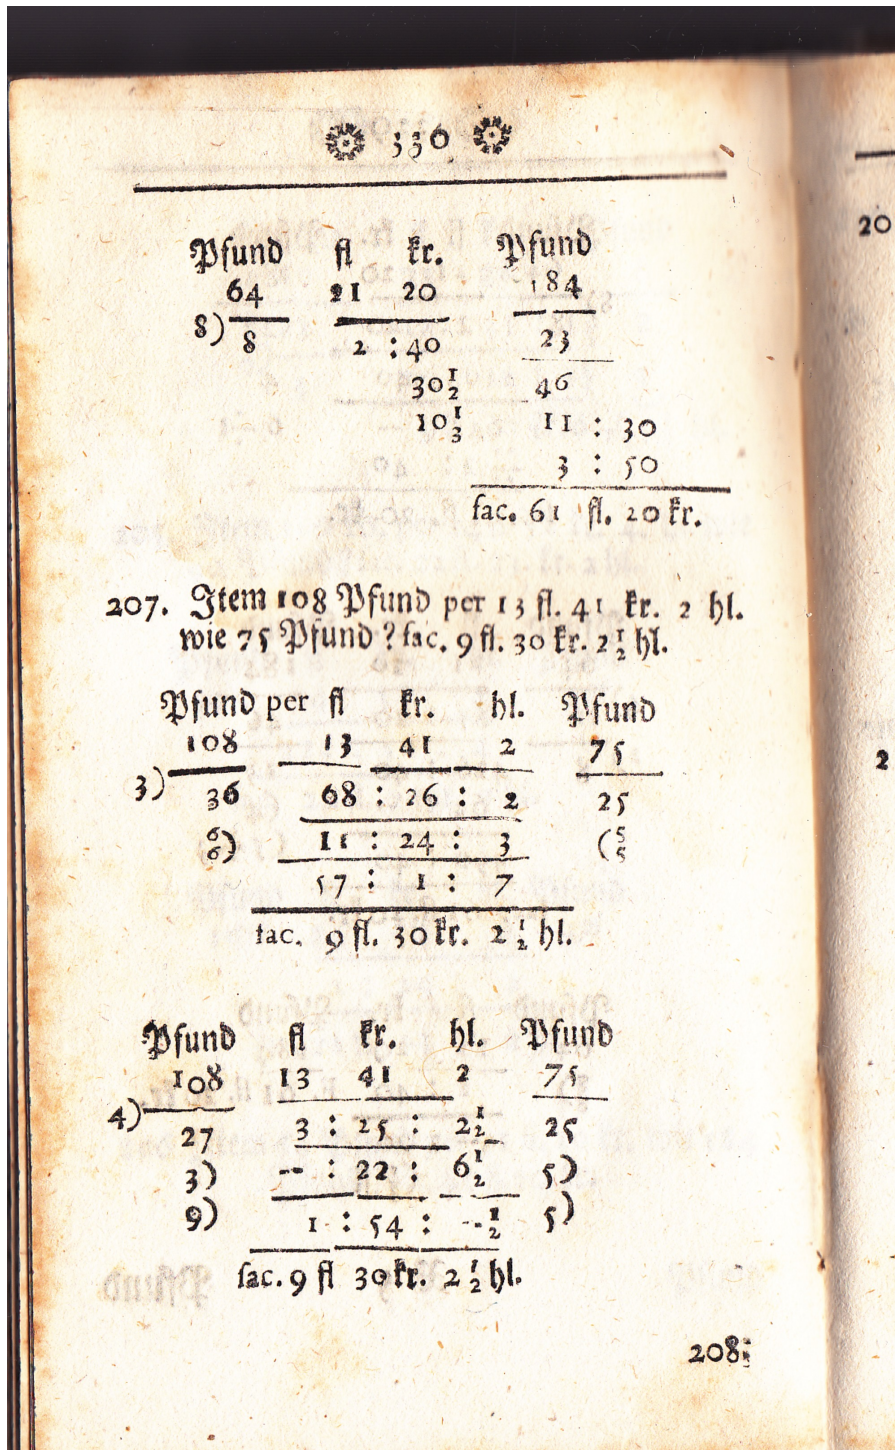 336
Pfund fl kr. Pfund
64 21 20 184
8) 8 2 : 40 23
30 1/2 46
10 1/3 11 : 30
3 : 50
fac. 61 fl. 20 kr.
207. Item 108 Pfund per 13 fl. 41 kr. 2 hl.
wie 75 Pfund ? fac. 9 fl. 30 kr. 2 1/2 hl.
Pfund per fl kr. hl. Pfund
108 13 41 2 75
3) 36 68 : 26 : 2 25
6/6) 11 : 24 : 3 (5/5
57 : 1 : 7
fac. 9 fl. 30 kr. 2 1/2 hl.
Pfund fl kr. hl. Pfund
108 13 41 2 75
4) 27 3 : 25 : 2 1/2 25
3) -- : 22 : 6 1/2 5)
9) 1 : 54 : -- 1/2 5)
fac. 9 fl 30 kr. 2 1/2 hl.
208.
20
2